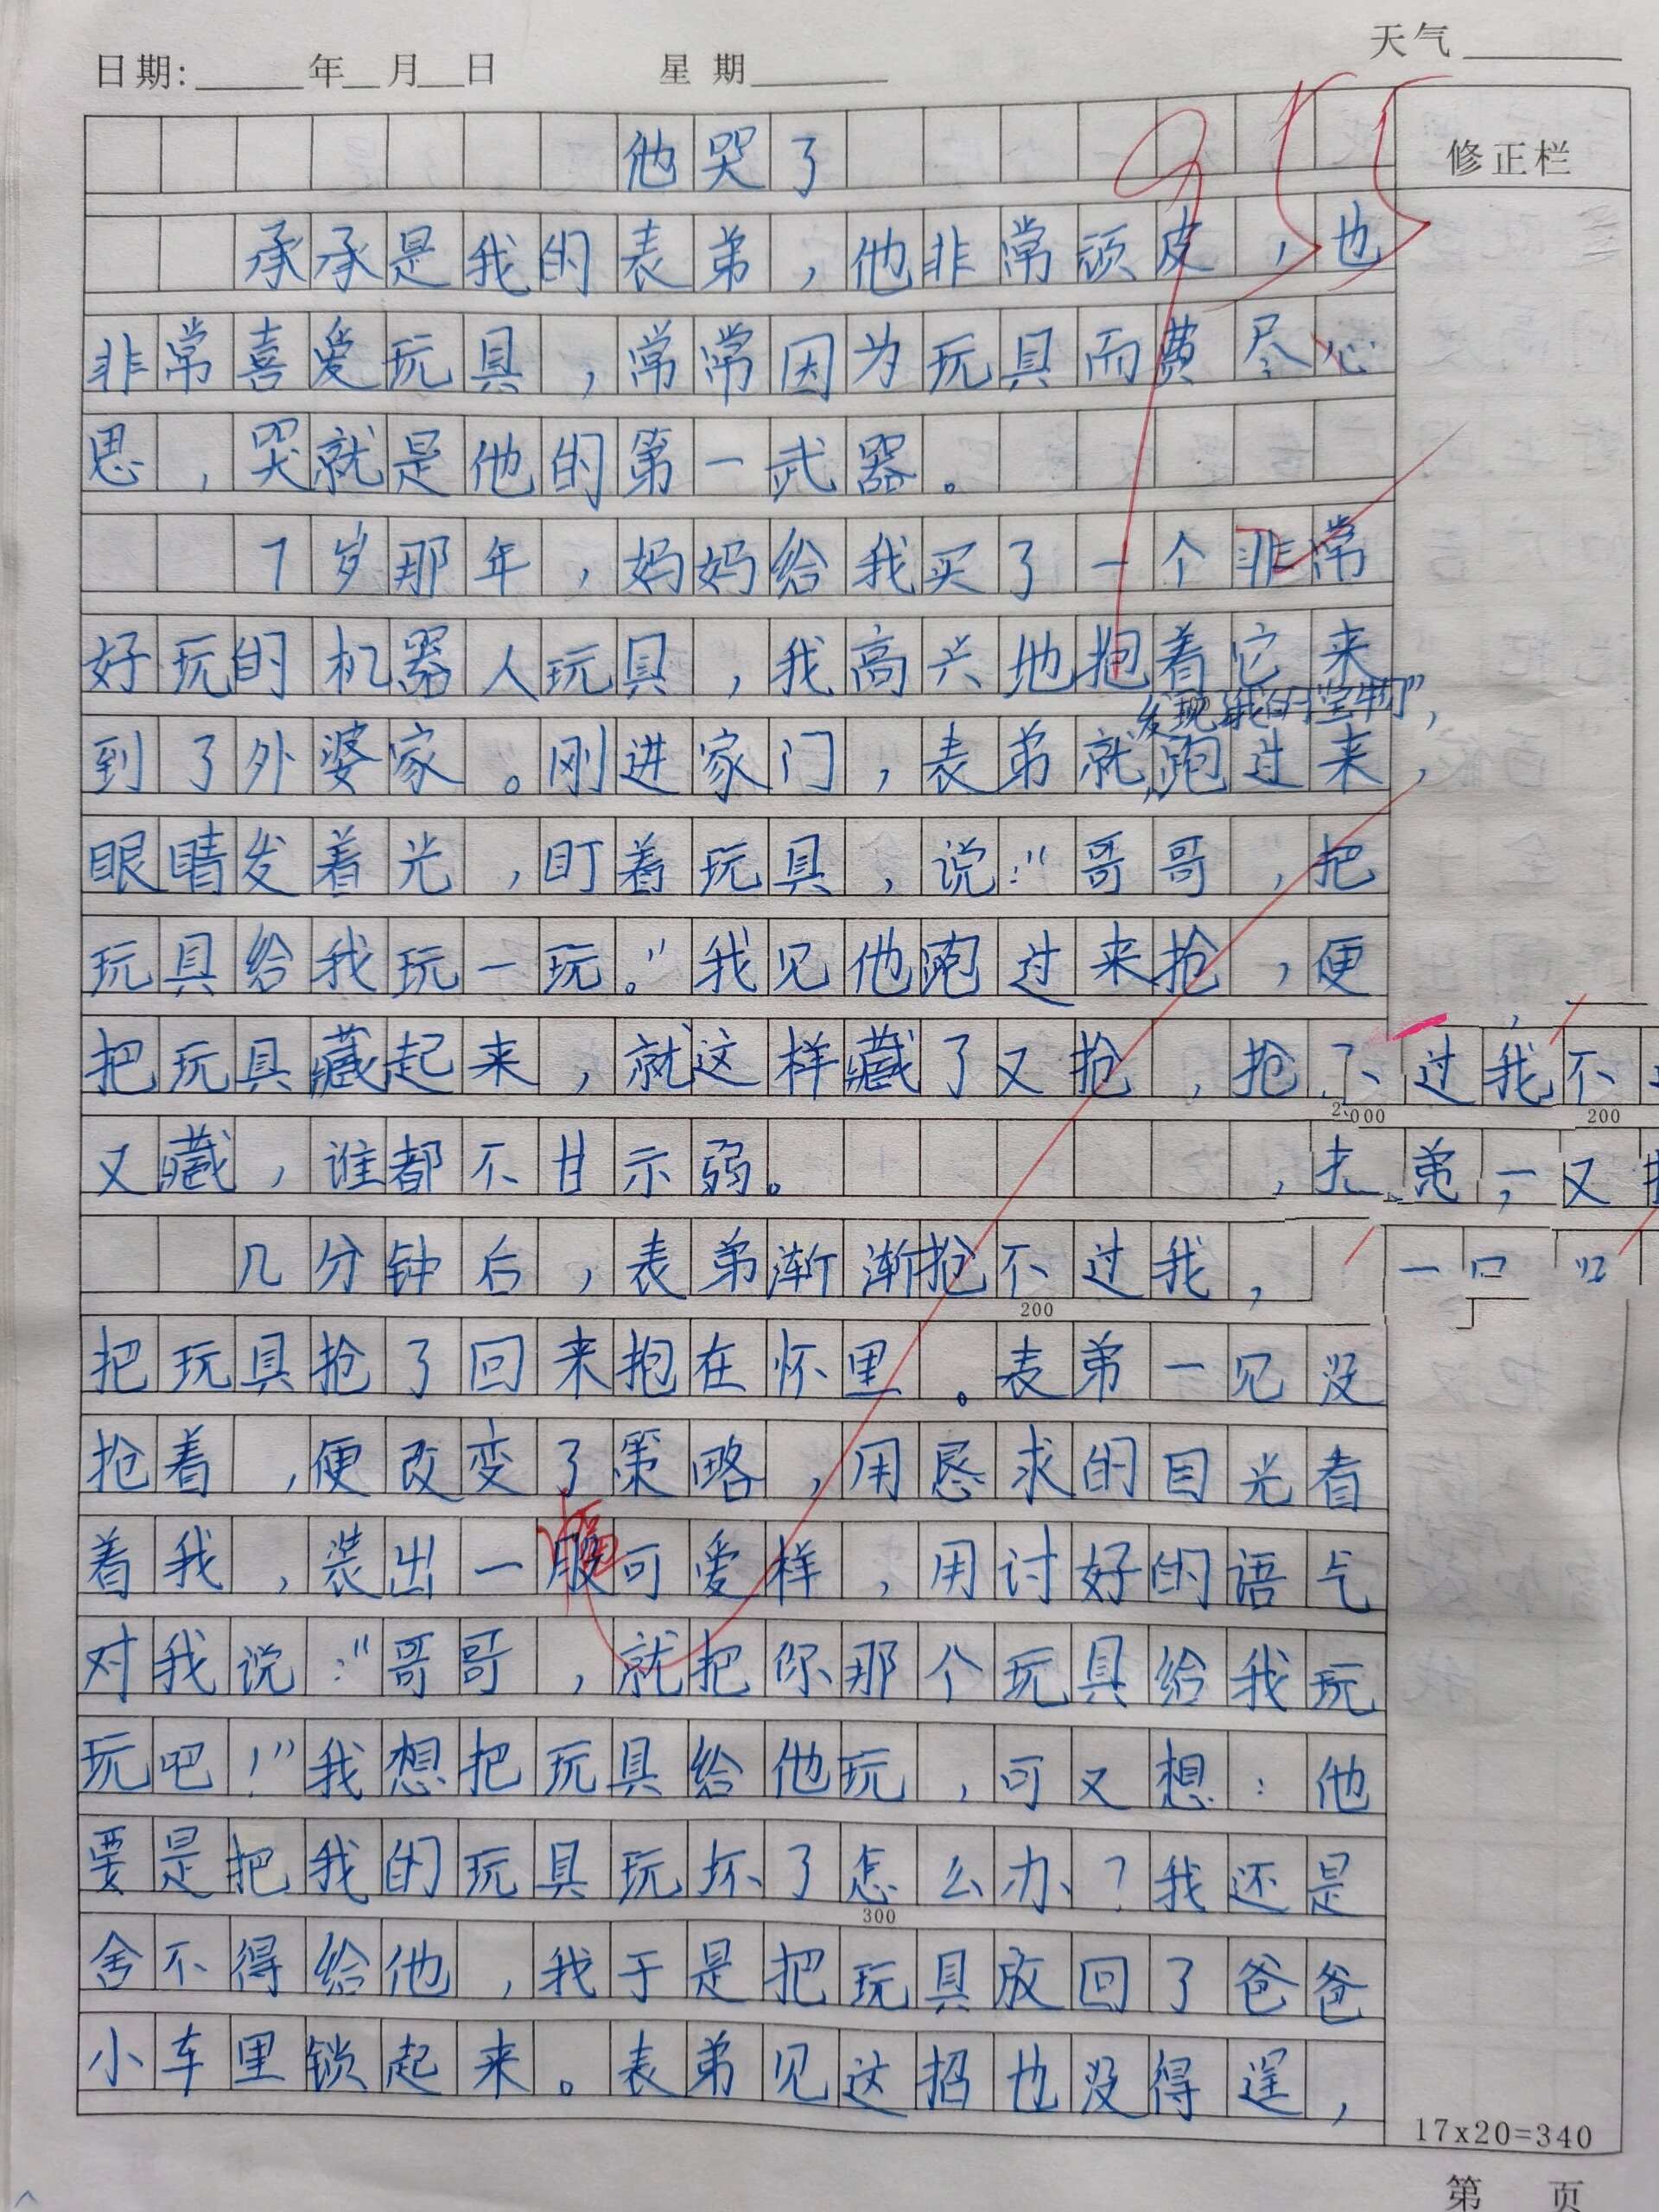 天气
日期: 年 月 日 星期
修正栏
他哭了
承承是我的表弟，他非常顽皮，也
非常喜爱玩具，常常因为玩具而费尽心
思，哭就是他的第一武器。
7岁那年，妈妈给我买了一个非常
好玩的机器人玩具，我高兴地抱着它来
发现我的"宝物"，
到了外婆家。刚进家门，表弟就跑过来，
眼睛发着光，盯着玩具，说："哥哥，把
玩具给我玩一玩。"我见他跑过来抢，便
把玩具藏起来，就这样藏了又抢，抢 过我不
200
又藏，谁都不甘示弱。 弟 又
几分钟后，表弟渐渐抢不过我，
200
把玩具抢了回来抱在怀里。表弟一见没
抢着，便改变了策略，用恳求的目光看
着我，装出一 可爱样，用讨好的语气
对我说："哥哥，就把你那个玩具给我玩
玩吧！"我想把玩具给他玩，可又想：他
要是把我的玩具玩坏了怎么办？我还是
300
舍不得给他，我于是把玩具放回了爸爸
小车里锁起来。表弟见这招也没得逞，
17x20=340
第 页